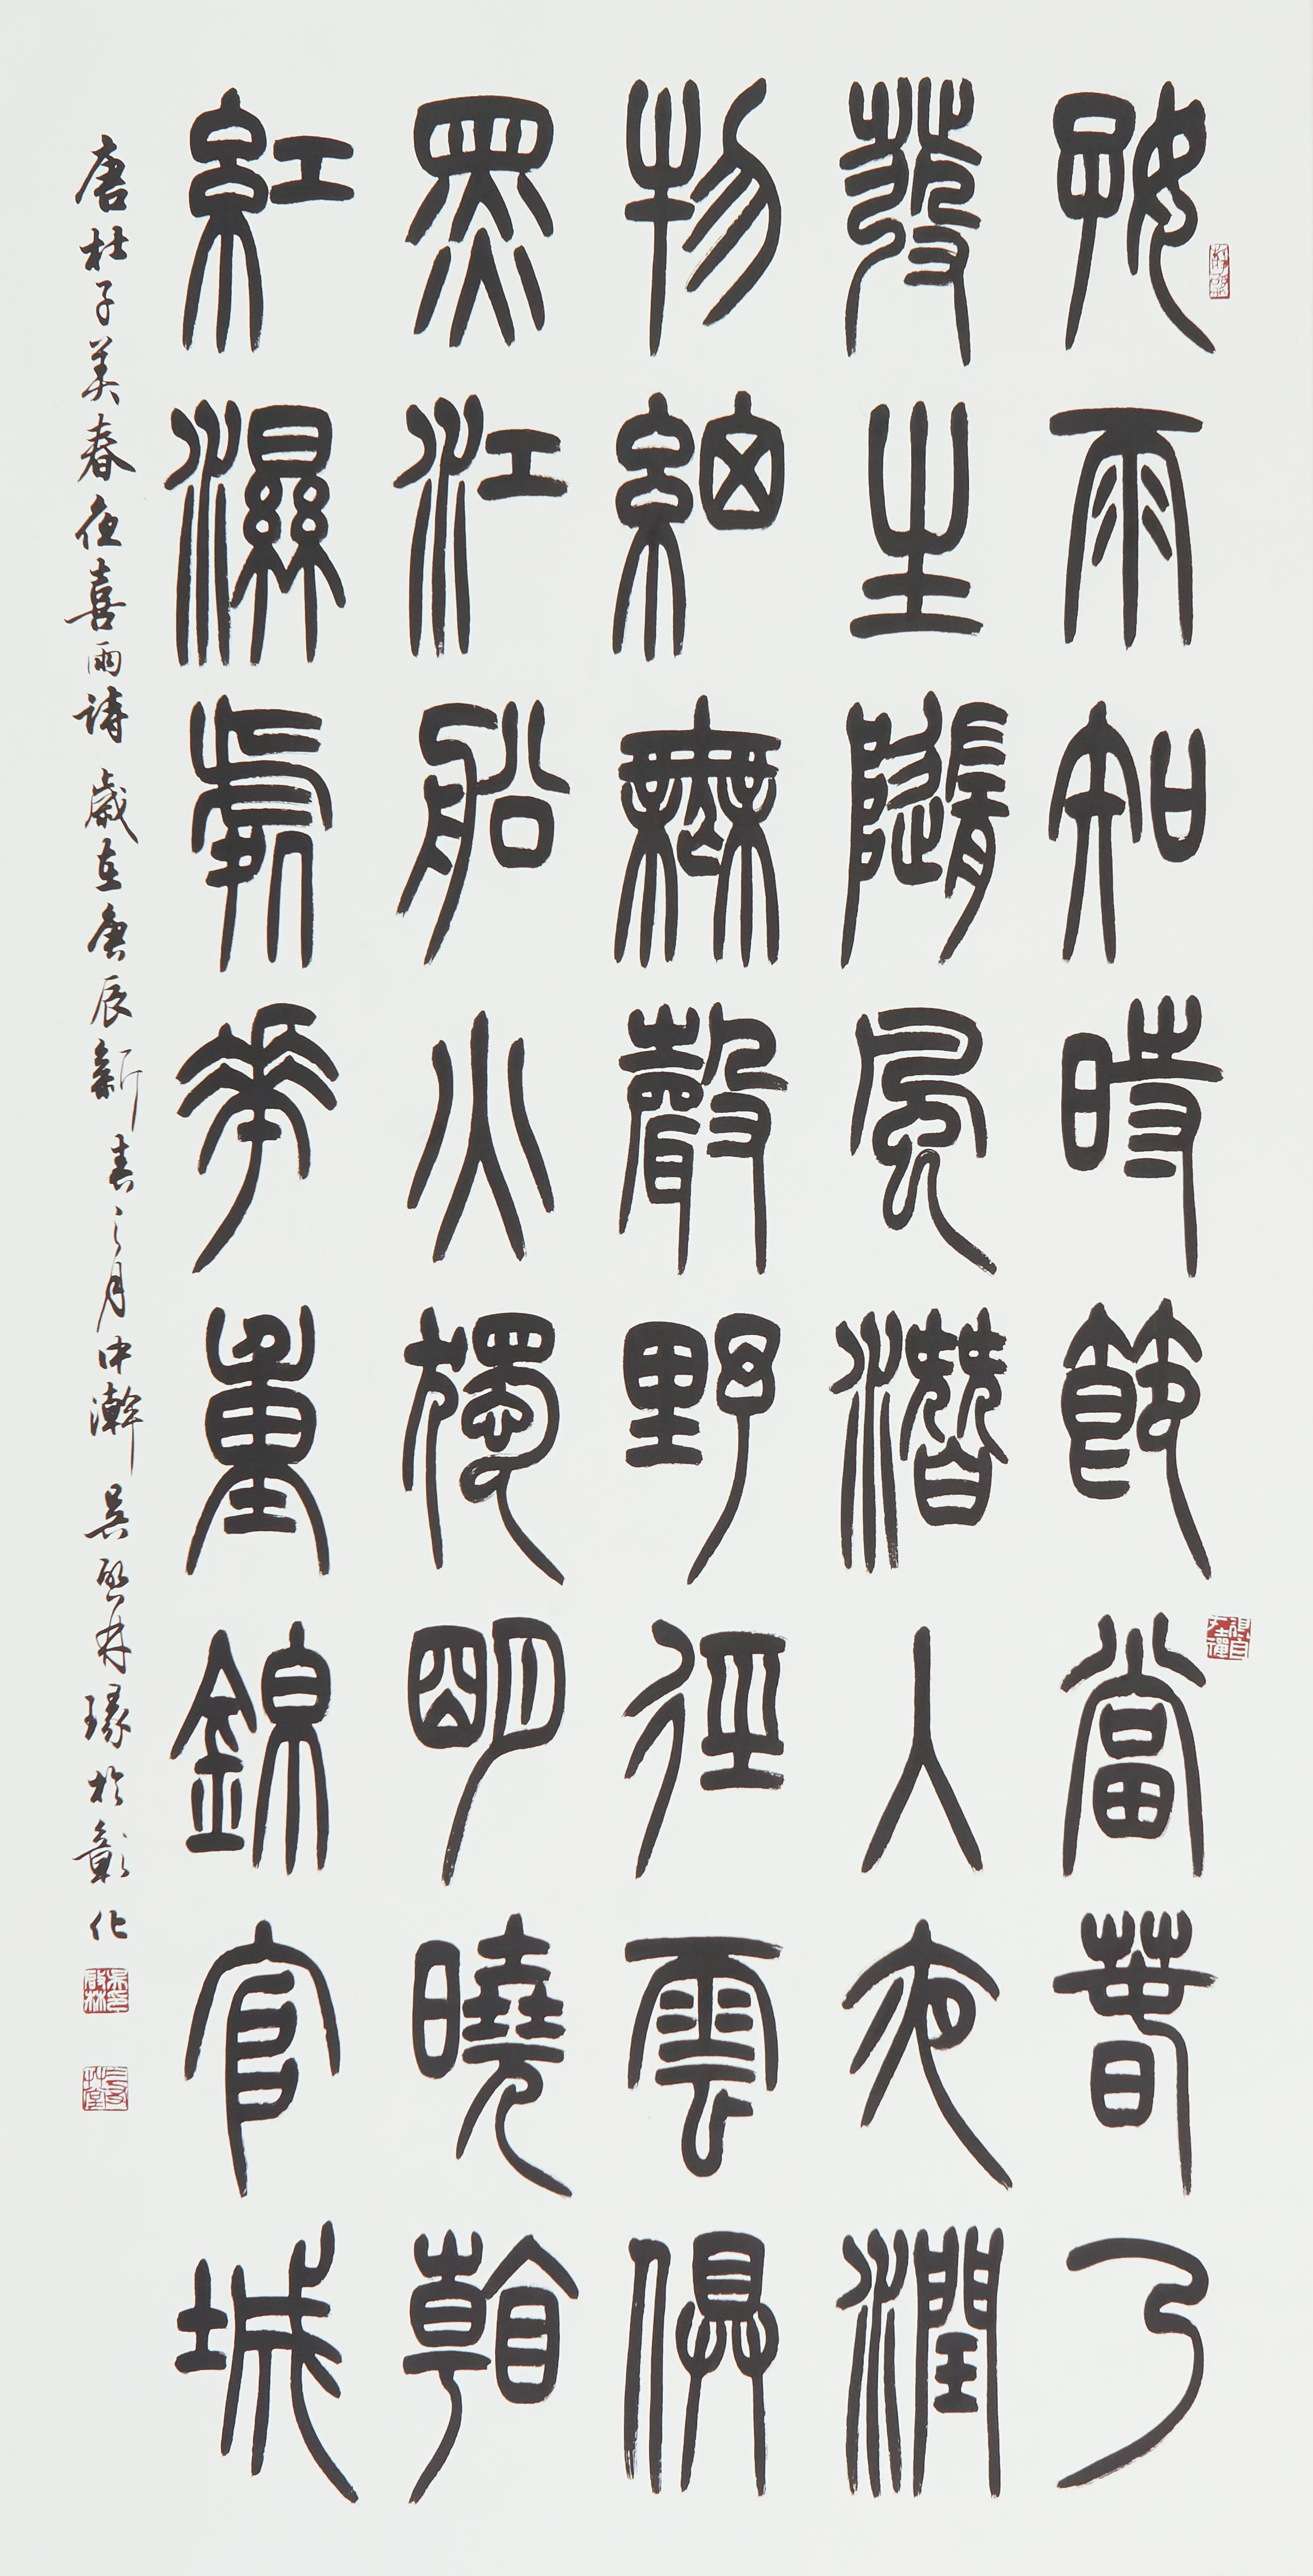 好雨知時節當春乃
發生隨風潛入夜潤
物細無聲野徑雲俱
黑江船火獨明曉看
紅濕處華重錦官城
唐杜子美春夜喜雨詩 歲在庚辰新春之月中澣 吳啟林瑑於彰化
得自在禪